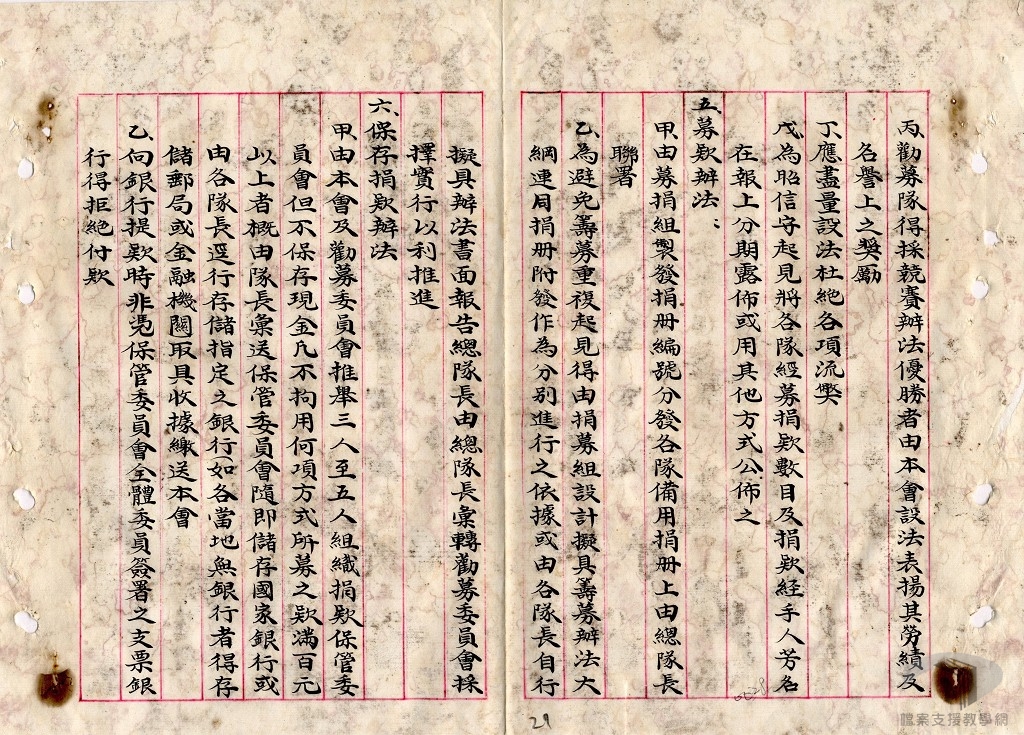 丙、勸募隊得採競賽辦法優勝者由本會設法表揚其勞績及
名譽上之獎勵
丁、應盡量設法杜絕各項流弊
戊、為昭信守起見將各隊經募捐欵數目及捐欵経手人芳名
在報上分期露佈或用其他方式公佈之
五、募欵辦法：
甲、由募捐組製發捐册編號分發各隊備用捐册上由總隊長
聯署
乙、為避免籌募重複起見得由捐募組設計擬具籌募辦法大
綱連同捐册附發作為分別進行之依據或由各隊長自行
擬具辦法書面報告總隊長由總隊長彙轉勸募委員會採
擇實行以利推進
六、保存捐欵辦法
甲、由本會及勸募委員會推舉三人至五人組織捐欵保管委
員會但不保存現金凡不拘用何項方式所募之欵滿百元
以上者概由隊長彙送保管委員會隨即儲存國家銀行或
由各隊長逕行存儲指定之銀行如各當地無銀行者得存
儲郵局或金融機關取具收據繳送本會
乙、向銀行提欵時非憑保管委員會全體委員簽署之支票銀
行得拒絕付欵
29
檔案支援教學網